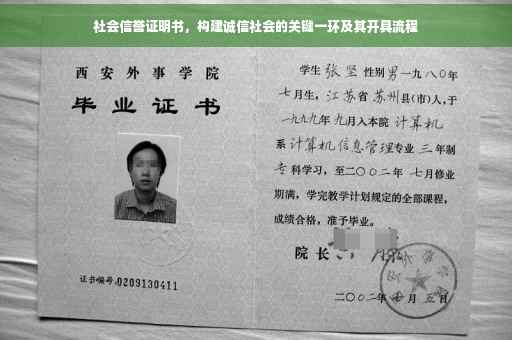 社会信誉证明书，构建诚信社会的关键一环及其开具流程
西安外事学院
毕业证书
证书编号:0209130411
学生张坚性别男一九八〇年
七月生，江苏省苏州县(市)人，于
一九九九年九月入本院计算机
系计算机信息管理专业三年制
专科学习，至二〇〇二年七月修业
期满，学完教学计划规定的全部课程，
成绩合格，准予毕业。
院长
二〇〇二年 月五日